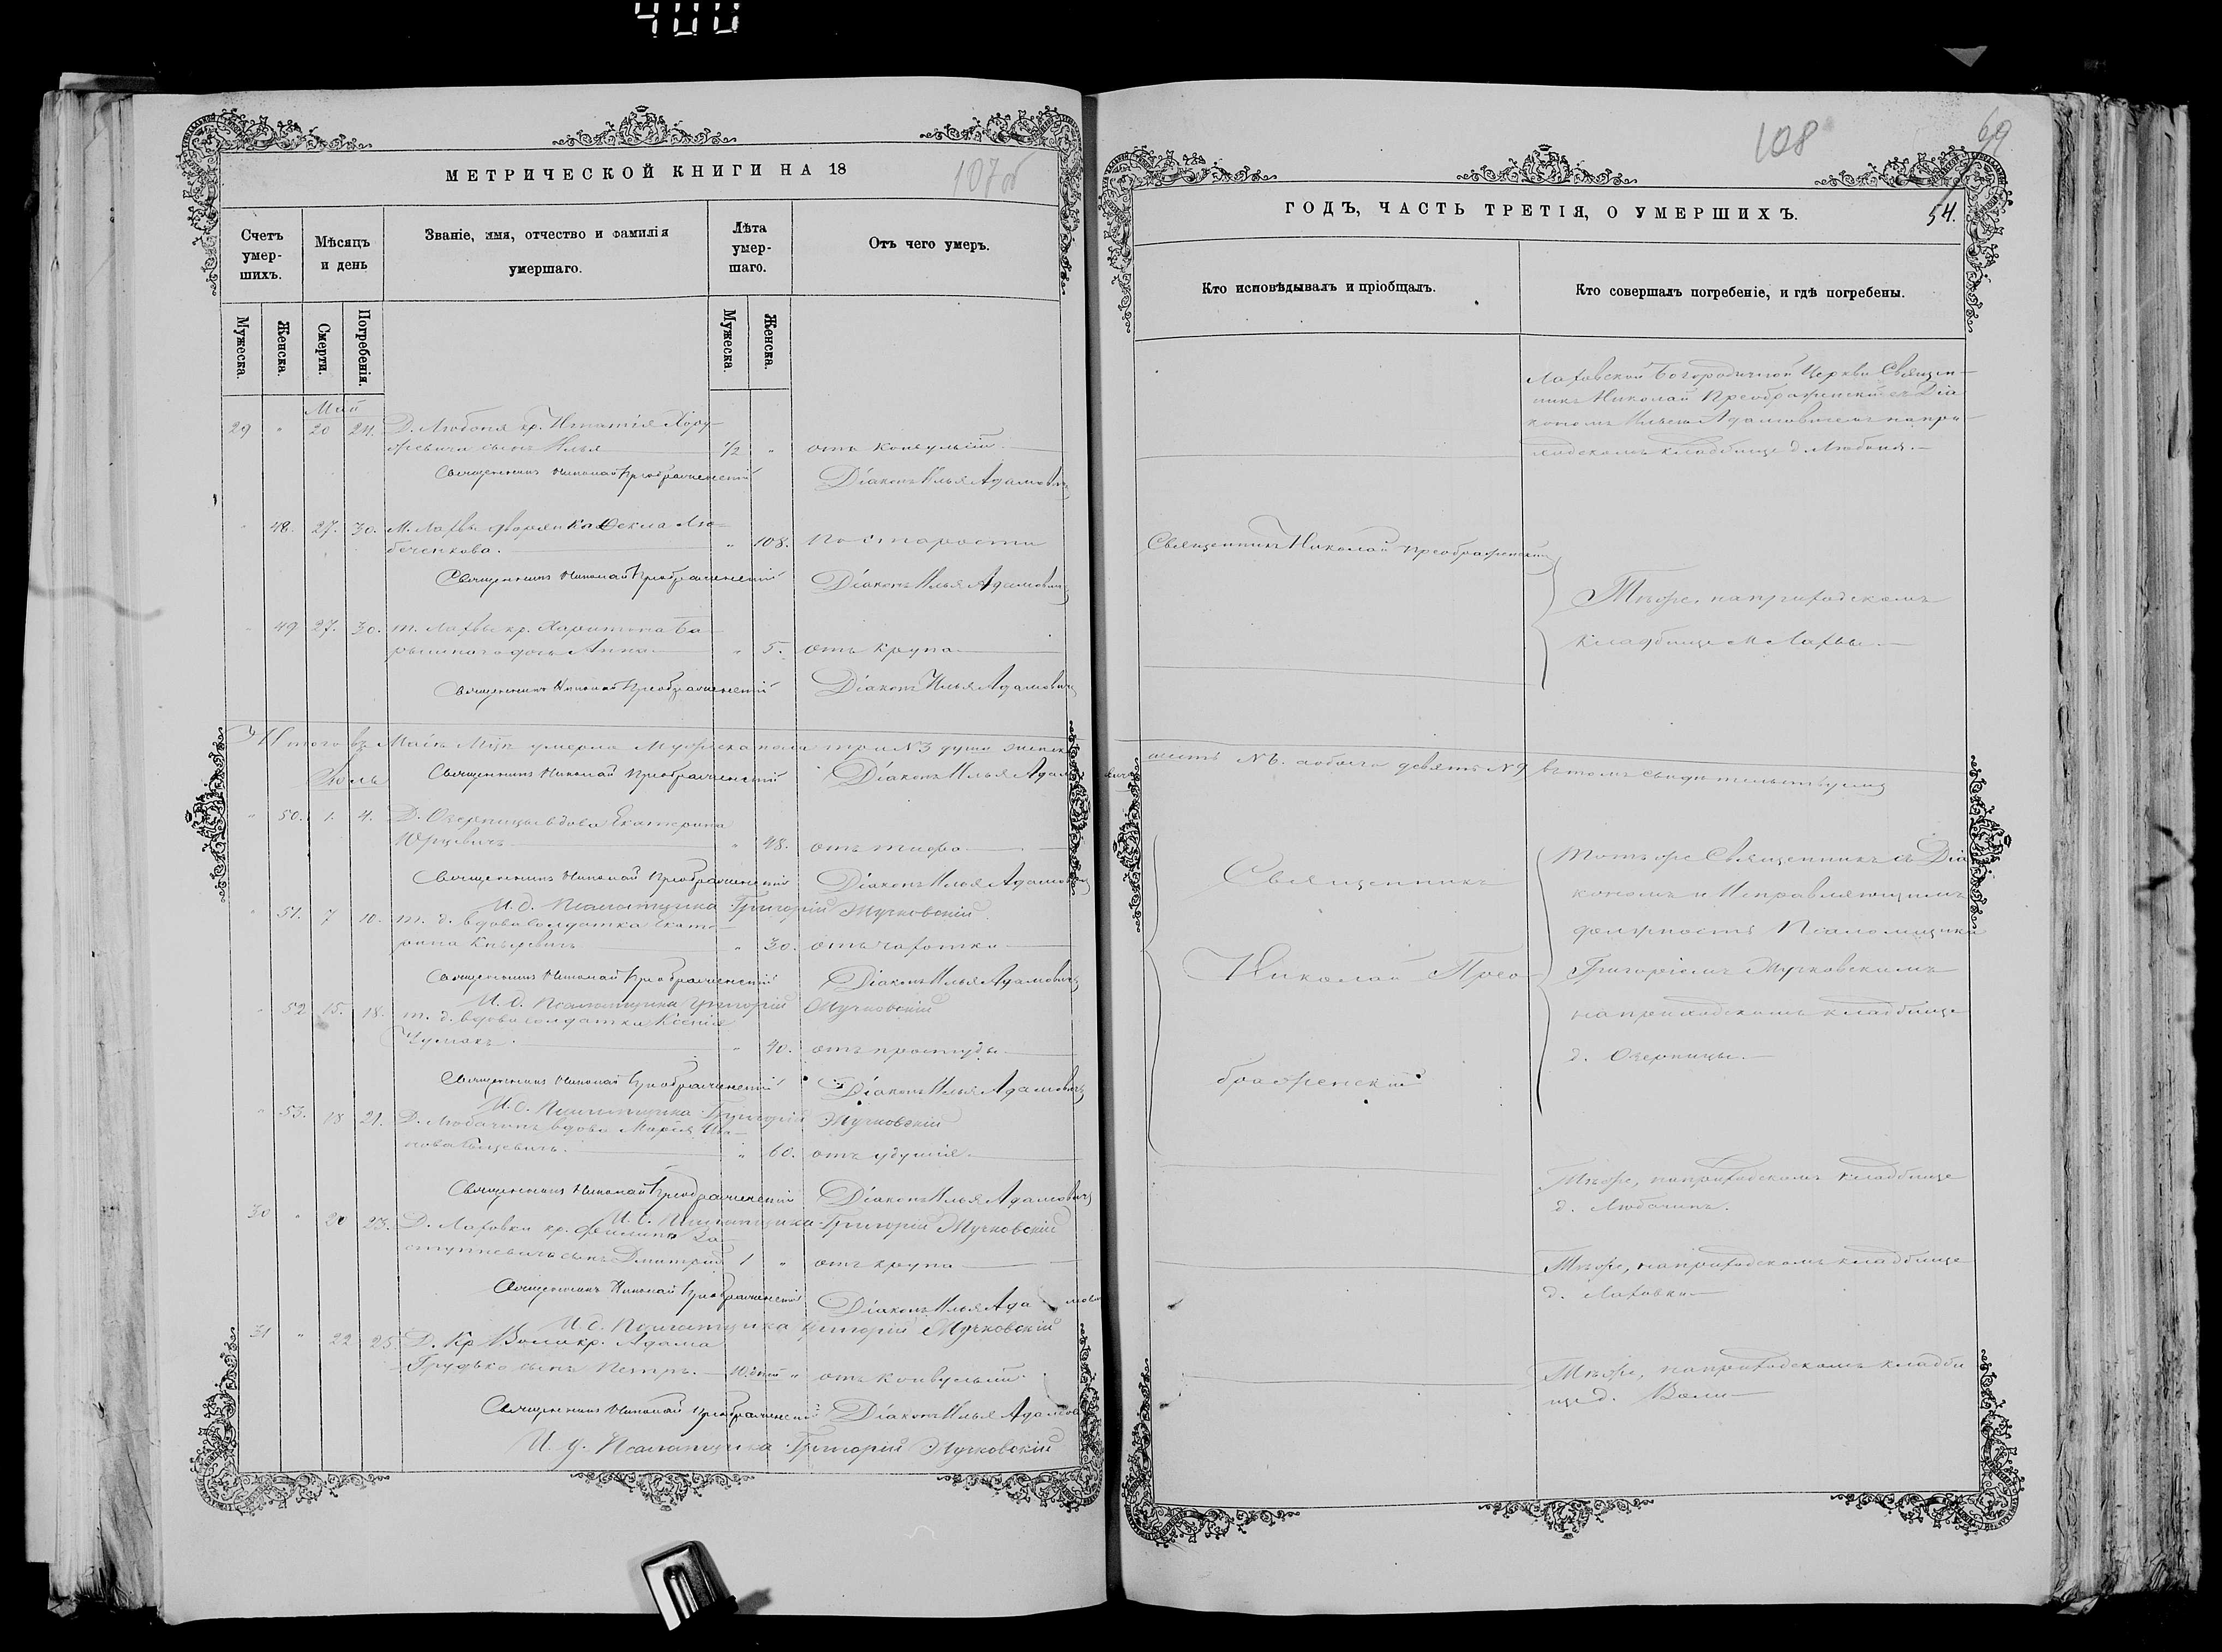 400
МЕТРИЧЕСКОЙ КНИГИ НА 18
107об
Счетъ умер-шихъ.
Мѣсяцъ и день
Званіе, имя, отчество и фамилія умершаго.
Лѣта умер-шаго.
Отъ чего умеръ.
Мужеска.
Женска.
Смерти.
Погребенія.
Мужеска.
Женска.
Май
29 " 20 24. Д. Любоня кр. Игнатія
сынъ Илья 1/2 " отъ конвульсій
Священникъ Николай Преображенскій Діаконъ Илья Адамовичъ
" 48. 27. 30. М. Лахвы дворянка Фекла Лю-
беченкова. " 108. По старости
Священникъ Николай Преображенскій Діаконъ Илья Адамовичъ
" 49 27. 30. т. Лахвы кр. Харитона
дочь Анна " 5. отъ крупа
Священникъ Николай Преображенскій Діаконъ Илья Адамовичъ
Итого въ Маѣ м-цѣ умерло Мужеска пола три №3 души женска
Священникъ Николай Преображенскій Діаконъ Илья Адамовичъ
" 50. 1. 4. Д. Озерницы вдова Екатерина
Юрцевичъ " 48. отъ тифа
Священникъ Николай Преображенскій Діаконъ Илья Адамовичъ
И. д. Псаломщика Григорій Жучковскій
" 51. 7 10. т. д. вдова солдатка Екате-
рина " 30. отъ чахотки
Священникъ Николай Преображенскій Діаконъ Илья Адамовичъ
И. д. Псаломщика Григорій Жучковскій
" 52 15. 18. т. д. вдова солдатка Ксенія
Чумакъ. " 40. отъ простуды
Священникъ Николай Преображенскій Діаконъ Илья Адамовичъ
И. д. Псаломщика Григорій Жучковскій
" 53. 18 21. Д. Любачинъ вдова Марія
" 60. отъ удушія
Священникъ Николай Преображенскій Діаконъ Илья Адамовичъ
И. д. Псаломщика Григорій Жучковскій
30 " 20 23. Д. Лаховки кр. Филиппа За-
сынъ Димитрій 1 " отъ крупа
Священникъ Николай Преображенскій Діаконъ Илья Адамовичъ
И. д. Псаломщика Григорій Жучковскій
31 " 22 25. Д. Кр Воли кр. Адама
Грудько сынъ Петръ. 10 дней " отъ конвульсій
Священникъ Николай Преображенскій Діаконъ Илья Адамовичъ
И. д. Псаломщика Григорій Жучковскій
108
69
ГОДЪ, ЧАСТЬ ТРЕТІЯ, О УМЕРШИХЪ.
54.
Кто исповѣдывалъ и пріобщалъ.
Кто совершалъ погребеніе, и гдѣ погребены.
Лаховской Богородичной Церкви Священ-
никъ Николай Преображенскій съ Діа
кономъ Ильею Адамовичемъ на при-
ходскомъ кладбище д. Любоня.
Священникъ Николай Преображенскій
Тѣже, на приходскомъ
кладбище М Лахвы.
шесть №6. а обоего девять №9 въ томъ свидѣтельствуемъ
Священникъ
Николай Прео-
браженскій
Тотъ же Священникъ съ Діа
кономъ и Исправляющимъ
должность Псаломщика
Григоріемъ Жучковскимъ
на приходскомъ кладбище
д. Озерницы.
Тѣже, на приходскомъ кладбище
д. Любачинъ.
Тѣже, на приходскомъ кладбище
д. Лаховки
Тѣже, на приходскомъ кладби
ще д. Воли